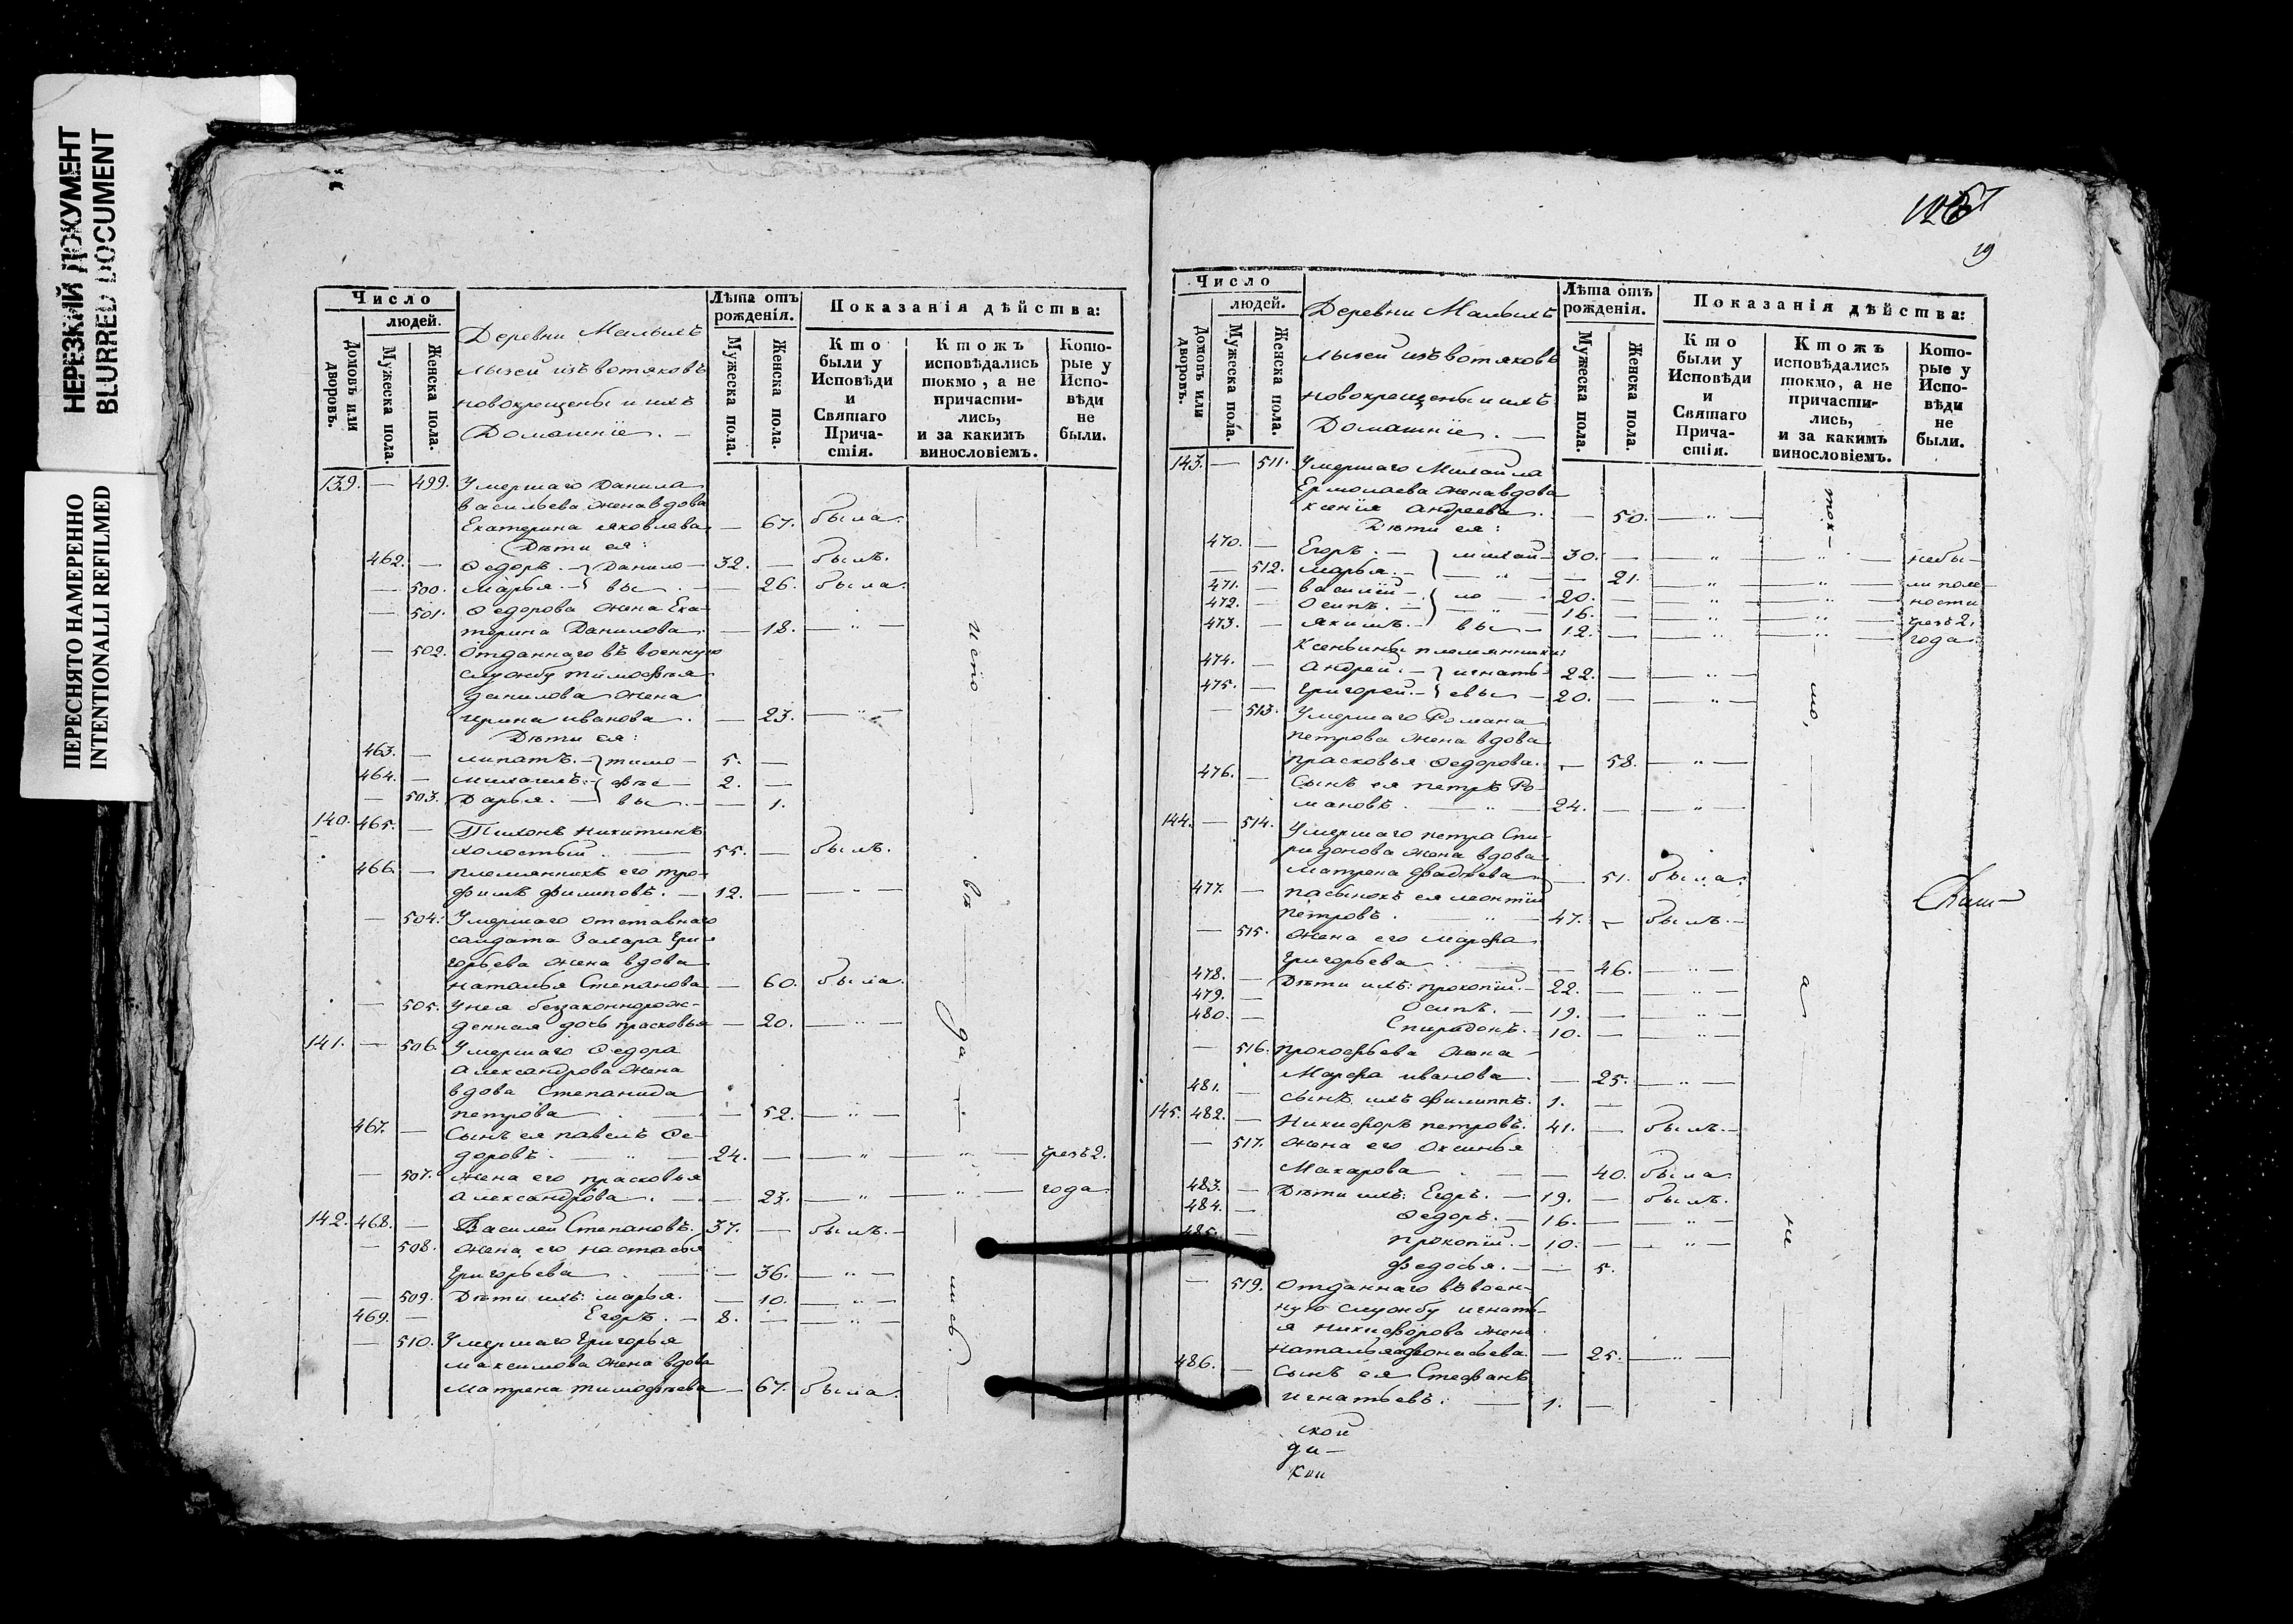 НЕРЕЗКИЙ ДОКУМЕНТ
BLURRED DOCUMENT
ПЕРЕСНЯТО НАМЕРЕННО
INTENTIONALLI REFILMED
Число
людей.
Домовъ или дворовъ.
Мужеска пола.
Женска пола.
Деревни Малыхъ
лызей изъ вотяковъ
новокрещены и ихъ
Домашніе. —
Лѣта отъ рожденія.
Мужеска пола.
Женска пола.
Показанія дѣйства:
Кто были у Исповѣди и Святаго Прича-стія.
Ктожъ исповѣдались токмо, а не причасти-лись, и за какимъ винословіемъ.
Кото-рые у Испо-вѣди не были.
139. — 499. Умершаго Данила
васильева жена вдова
Екатерина яковлева — 67. была.
Дѣти ея:
462. — Ѳедоръ. — Данило— 32. — былъ.
— 500. Марья. — вы — 26. была.
— 501. Ѳедорова жена Ека-
терина Данилова. — 18. — „ —
— 502. Отданнаго въ военную
службу тимофея
данилова жена
ирина иванова. — 23. — „ —
Дѣти ея:
463. — липатъ. — тимо— 5. —
464. — михаилъ. — фѣе— 2. —
— 503. Дарья. — вы — 1.
140. 465. — Тихонъ никитинъ
холостый. — 55. — былъ.
466. — племянникъ его тро-
фимъ филиповъ. — 12. — „ —
— 504. Умершаго отставнаго
салдата Захара Гри-
горьева жена вдова
наталья Степанова — 60. была.
— 505. У нея беззаконнорож-
денная дочь прасковья — 20. — „ —
141. — 506. Умершаго Ѳедора
александрова жена
вдова Степанида
петрова — 52. — „ —
467. — Сынъ ея павелъ Ѳе-
доровъ. — „ — 24. — — „ — — „ — чрезъ 2.
— 507. жена его прасковья
александрова. — 23. — „ — — „ — года.
142. 468. — Василей Степановъ. 37. — былъ. —
— 508. жена его настасья
григорьева. — 36. — „ —
— 509. Дѣти ихъ: марья. — 10. — „ —
469. — Егоръ. — 8. — „ —
— 510. Умершаго григорья
максимова жена вдова
матрена тимофѣева — 67. была.
Число
людей.
Домовъ или дворовъ.
Мужеска пола.
Женска пола.
Деревни Малыхъ
лызей изъ вотяковъ
новокрещены и ихъ
Домашніе. —
Лѣта отъ рожденія.
Мужеска пола.
Женска пола.
Показанія дѣйства:
Кто были у Исповѣди и Святаго Прича-стія.
Ктожъ исповѣдались токмо, а не причасти-лись, и за какимъ винословіемъ.
Кото-рые у Испо-вѣди не были.
19
143. — 511. Умершаго Михаила
Ермолаева жена вдова
ксенія андреева. — 50. — „ —
Дѣти ея:
470. — Егоръ. — михай— 30. — „ — „ — небы—
— 512. марья. — „ — 21. — „ — „ — ли поле—
471. — василій — ло — 20. — „ — „ — ности
472. — Осипъ. — „ — 16. — „ — „ — чрезъ 2.
473. — якимъ. — вы — 12. — „ — „ — года.
Ксеньины племянники:
474. — андрей. — игнать— 22. — „ —
475. — григорей. — евы — 20. — „ —
— 513. Умершаго Романа
петрова жена вдова
прасковья Ѳедорова. — 58. — „ —
476. — Сынъ ея петръ Ро-
мановъ. — „ — 24. — „ —
144. — 514. Умершаго петра Спи-
ридонова жена вдова
матрена фадѣева — 51. была.
477. — пасынокъ ея леонтій
петровъ. — „ — 47. — былъ. —
— 515. жена его марфа
григорьева — 46. — „ —
478. — Дѣти ихъ: прокопій. — 22. — „ —
479. — Осипъ. — 19. — „ —
480. — Спиридонъ. — 10. — „ —
— 516. прокофьева жена —
Марфа иванова — 25. — „ —
481. — сынъ ихъ филиппъ. 1. —
145. 482. — Никифоръ петровъ. 41. — былъ. —
— 517. жена его Оксинья
Макарова — 40. была.
483. — Дѣти ихъ: Егоръ. — 19. — былъ.
484. — Ѳедоръ. — 16. — „ —
485. — прокопій. — 10. — „ —
федосья. — 5.
— 519. Отданнаго въ воен-
ную службу игнать-
я никифорова жена
наталья — 25. — „ —
486. — Сынъ ея Стефанъ
игнатьевъ. — 1. —
ской
ди—
кіи